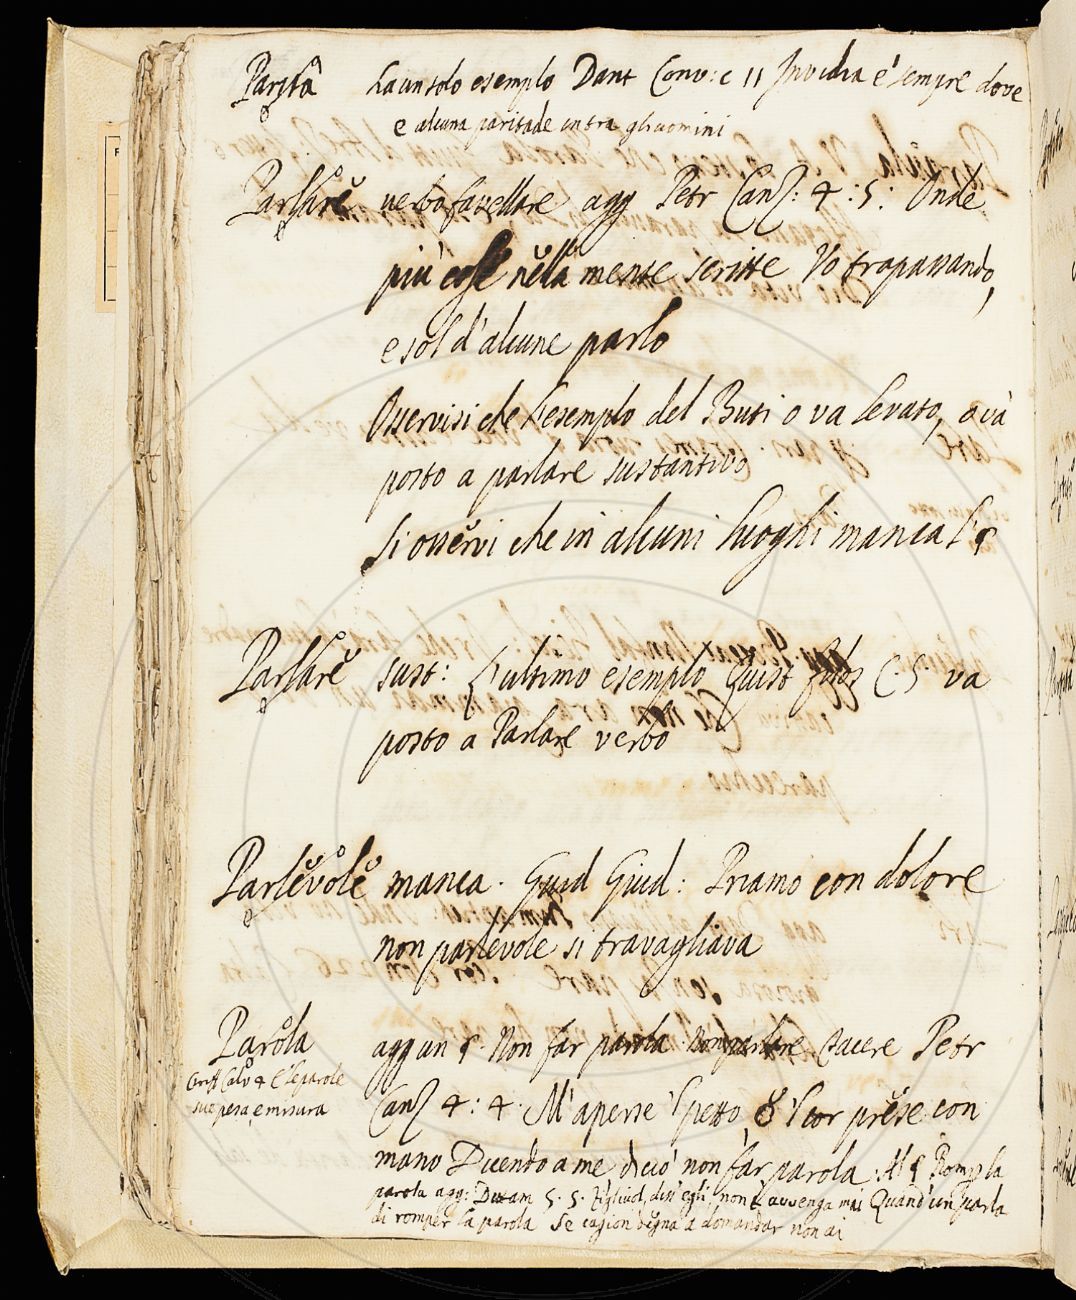 Parità ha un solo esemplo Dant Conv: c 11 Invidia è sempre dove
e alcuna paritade intra gli uomini
Parlare verbo favellare agg Petr Canz: 4: 5: Onde
più cose nella mente scritte Vo trapassando,
e sol d'alcune parlo
Osservisi che l'esemplo del Buti o va levato, o và
posto a parlare sustantivo
Si osservi che in alcuni luoghi manca l' §
Parlare sust: L'ultimo esemplo Guist C. 5 va
posto a Parlare verbo
Parlevole manca. Guid Giud: Priamo con dolore
non parlevole si travagliava
Parola agg un §. Non far parola Non parlare Tacere Petr
Criff Calv 4 E le parole
sue pesa e misura
Canz 4: 4. M'aperse 'l petto, e 'l cor prese con
mano Dicendo a me di ciò non far parola. Al § Romp la
parola agg: Dittam 5. 5. Figliuol, diss' egli, non t' avvenga mai Quand' un parla
di romper la parola Se cagion degna a domandar non ai